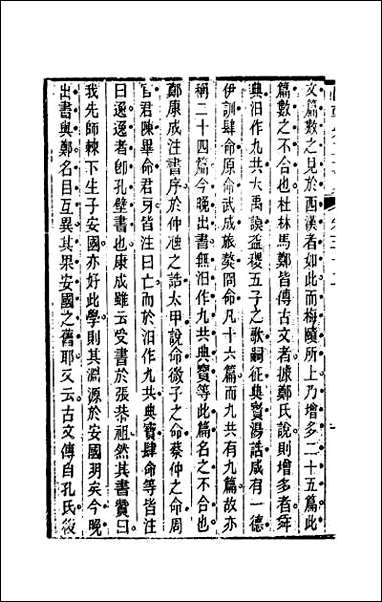 文篇數之見於西漢者如此而梅賾所上乃增多二十五篇此
篇數之不合也杜林馬鄭皆傳古文者據鄭氏說則增多者舜
典汨作九共大禹謨益稷五子之歌嗣征典寶湯誥咸有一德
伊訓肆命原命武成旅獒冏命凡十六篇而九共有九篇故亦
稱二十四篇今晚出書無汨作九共典寶等此篇名之不合也
鄭康成注書序於仲虺之誥太甲說命微子之命蔡仲之命周
官君陳畢命君牙皆注曰亡而於汨作九共典寶肆命等皆注
曰逸逸者卽孔壁書也康成雖云受書於張恭祖然其書贊曰
我先師棘下生子安國亦好此學則其淵源於安國明矣今晚
出書與鄭名目互異其果安國之舊耶又云古文傳自孔氏後